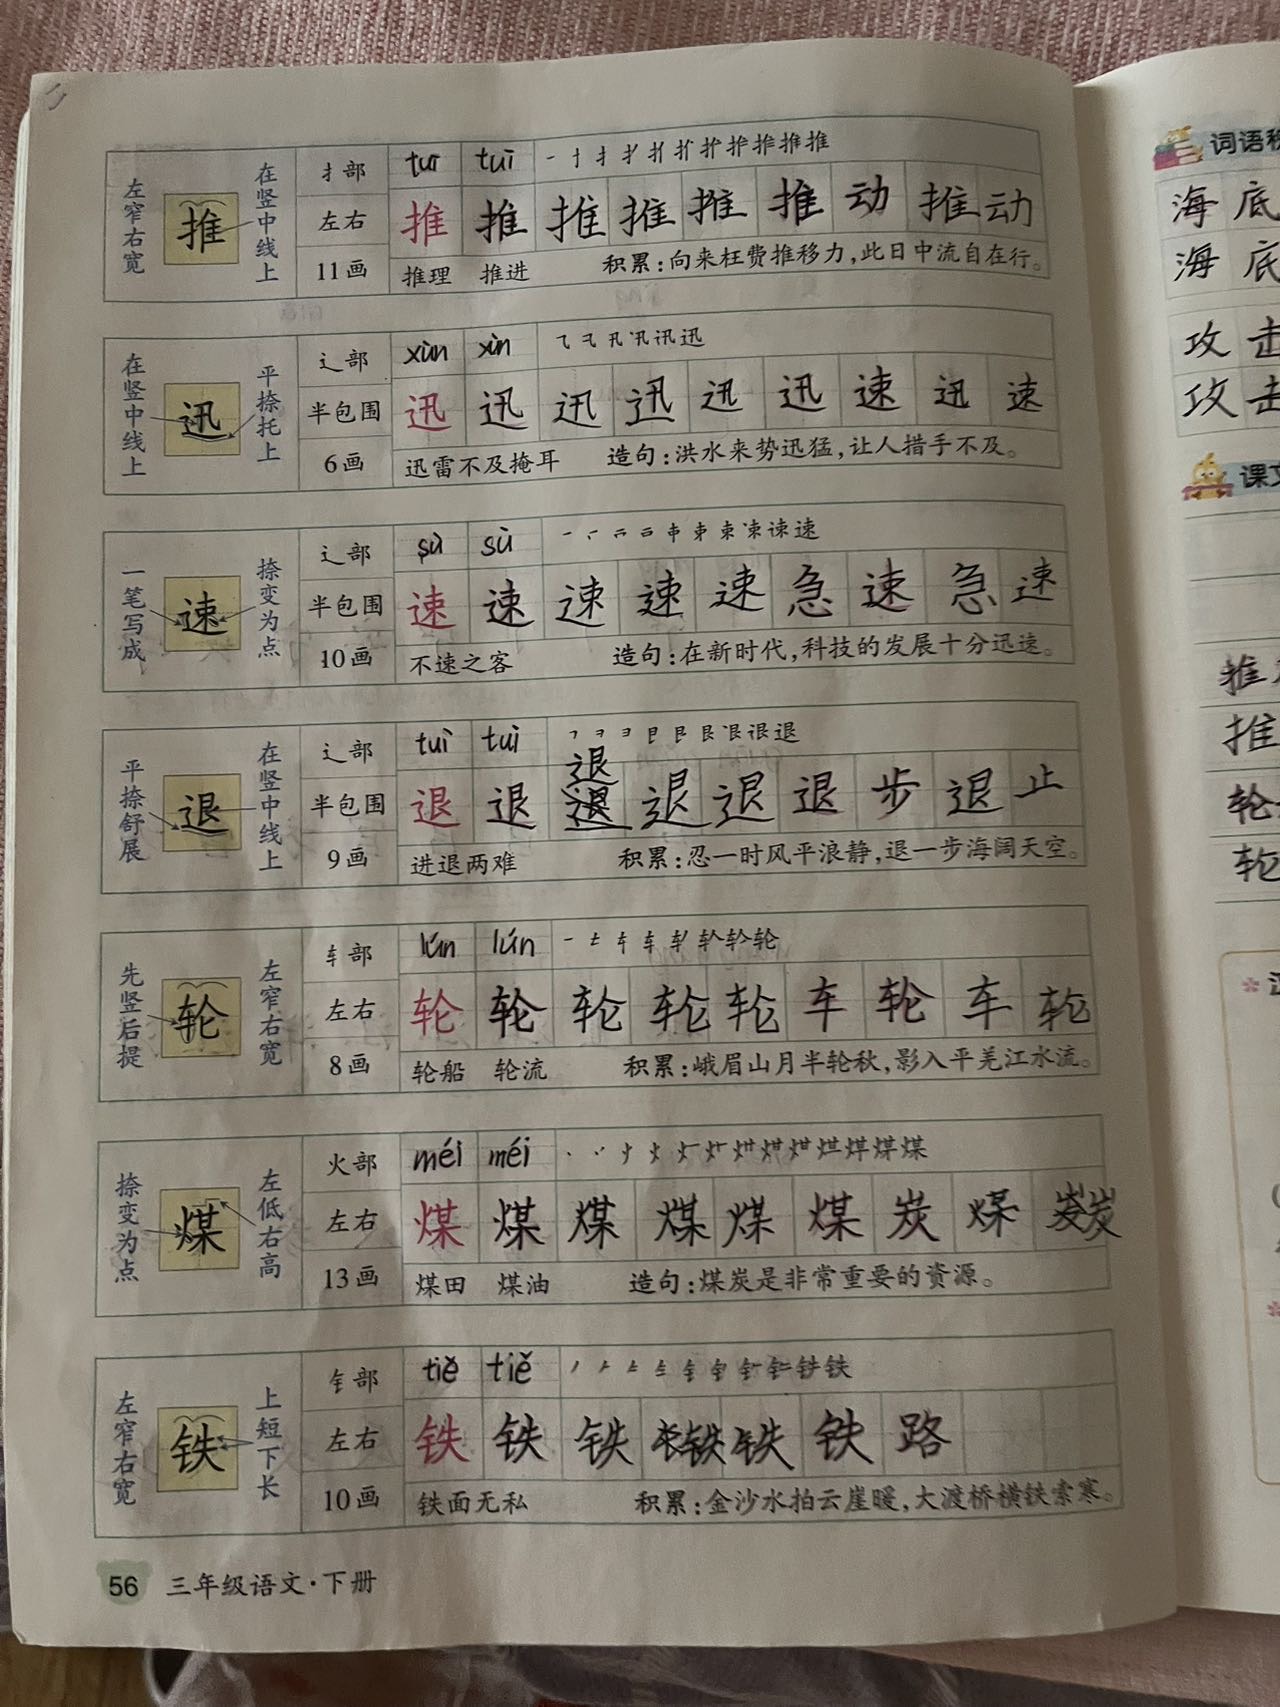 左窄右宽 推 在竖中线上
扌部 tuī tuī
左右 推 推 推 推 推 推 动 推 动
11画 推理 推进 积累：向来枉费推移力，此日中流自在行。
在竖中线上 迅 平捺托上
辶部 xùn xùn
半包围 迅 迅 迅 迅 迅 迅 速 迅 速
6画 迅雷不及掩耳 造句：洪水来势迅猛，让人措手不及。
一笔写成 速 捺变为点
辶部 sù sù
半包围 速 速 速 速 速 急 速 急 速
10画 不速之客 造句：在新时代，科技的发展十分迅速。
平捺舒展 退 在竖中线上
辶部 tuì tuì
退
半包围 退 退 退 退 退 退 步 退 止
9画 进退两难 积累：忍一时风平浪静，退一步海阔天空。
先竖后提 轮 左窄右宽
车部 lún lún
左右 轮 轮 轮 轮 轮 车 轮 车 轮
8画 轮船 轮流 积累：峨眉山月半轮秋，影入平羌江水流。
捺变为点 煤 左低右高
火部 méi méi
左右 煤 煤 煤 煤 煤 煤 炭 煤 炭
13画 煤田 煤油 造句：煤炭是非常重要的资源。
左窄右宽 铁 上短下长
钅部 tiě tiě
左右 铁 铁 铁 铁 铁 铁 路
10画 铁面无私 积累：金沙水拍云崖暖，大渡桥横铁索寒。
56 三年级语文·下册
词语
海 底
海 底
攻 击
攻 击
课文
推
推
轮
轮